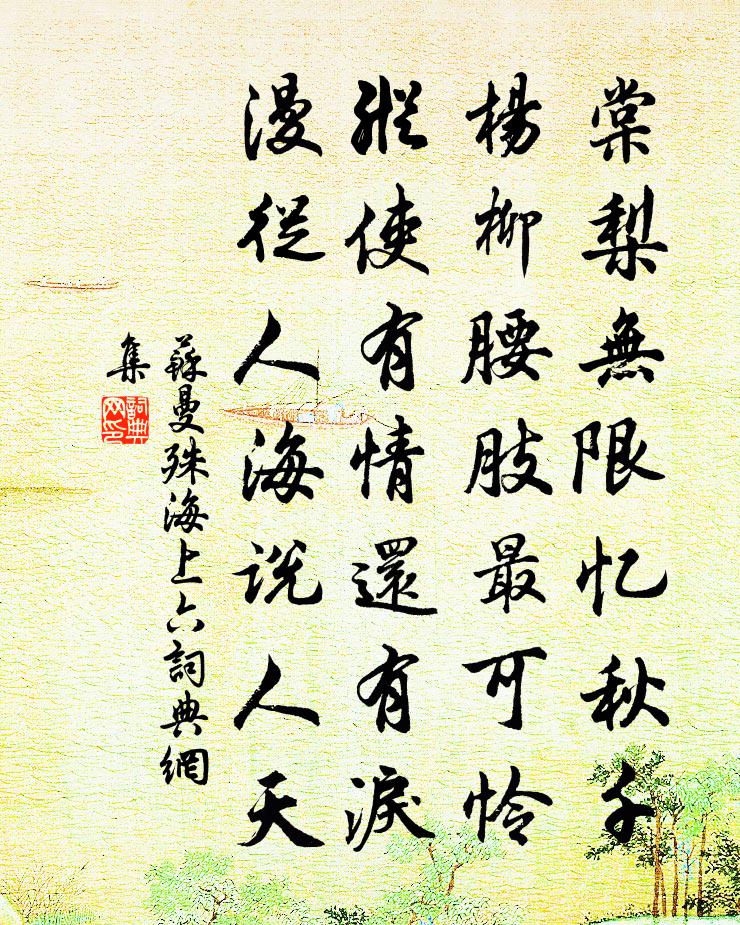 棠梨無限忆秋千
楊柳腰肢最可怜
縱使有情還有淚
漫從人海説人天
蘇曼殊海上六詞典網
集
詞典网印